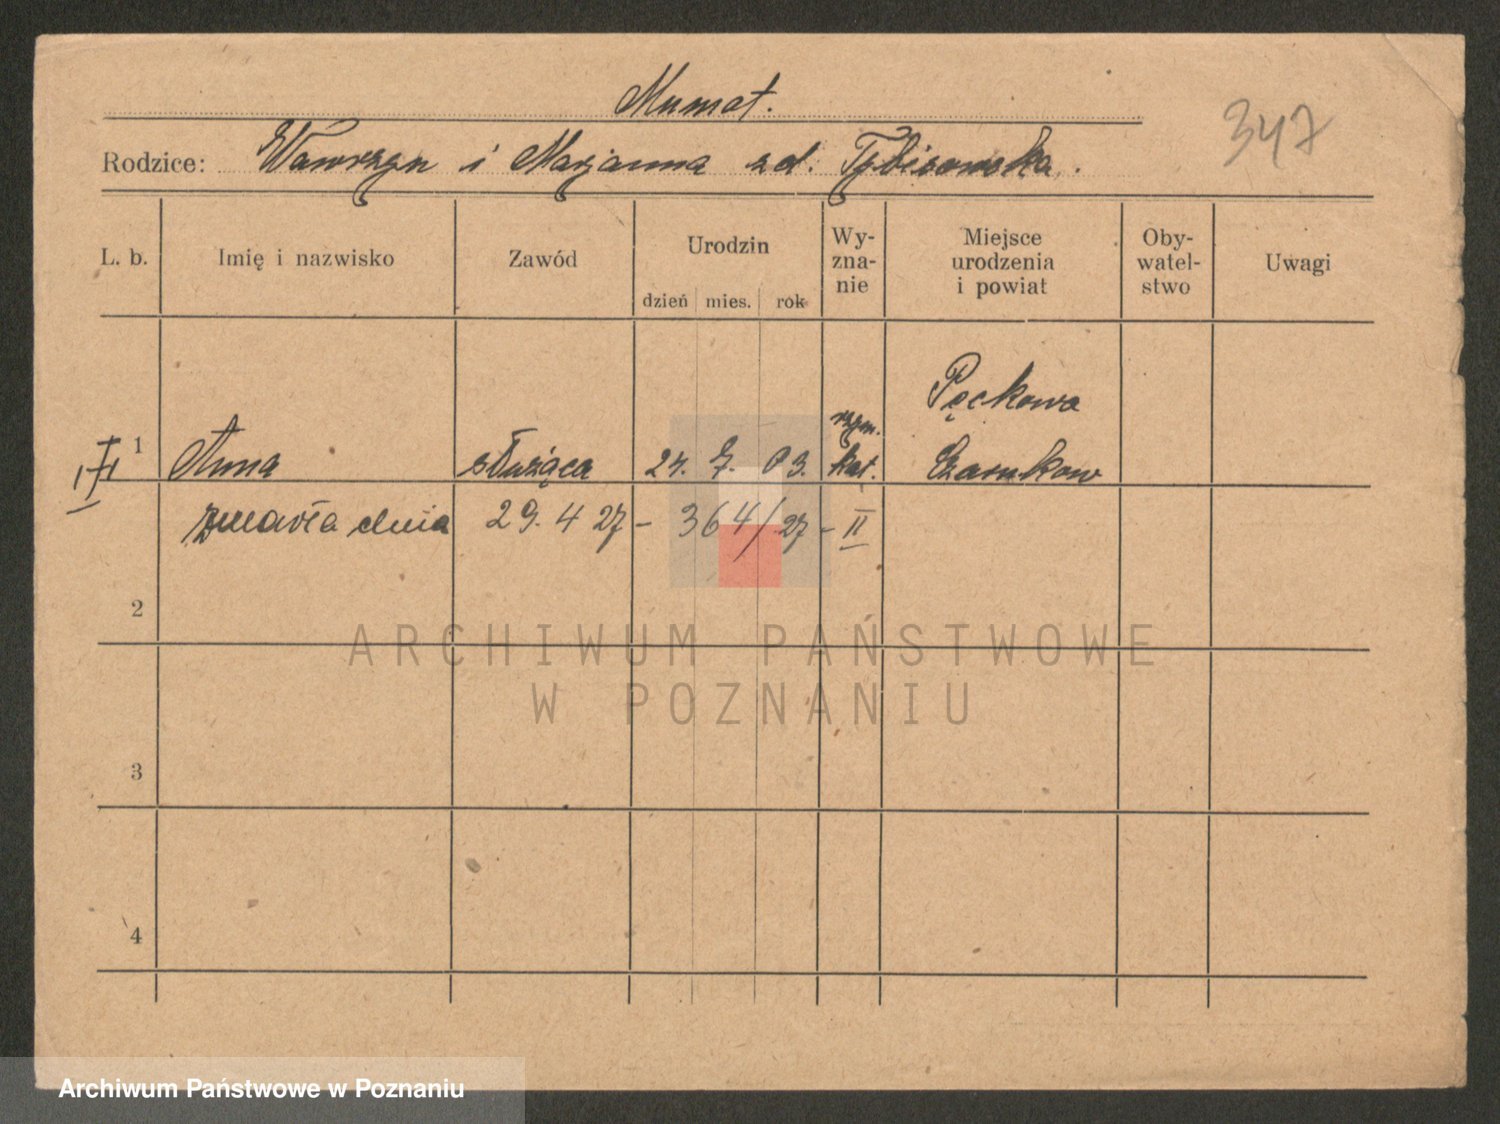 Mumot.
347
Rodzice: Wawrzyn i Marjanna zd.
L. b. Imię i nazwisko Zawód Urodzin dzień mies. rok Wy-zna-nie Miejsce urodzenia i powiat Oby-watel-stwo Uwagi
Pęckowo
rzym.
1 Anna służąca 24. 7. 03. kat. Czarnków
zmarła dnia 29. 4 27 - 364/27 - II
2
ARCHIWUM PAŃSTWOWE
W POZNANIU
3
4
Archiwum Państwowe w Poznaniu